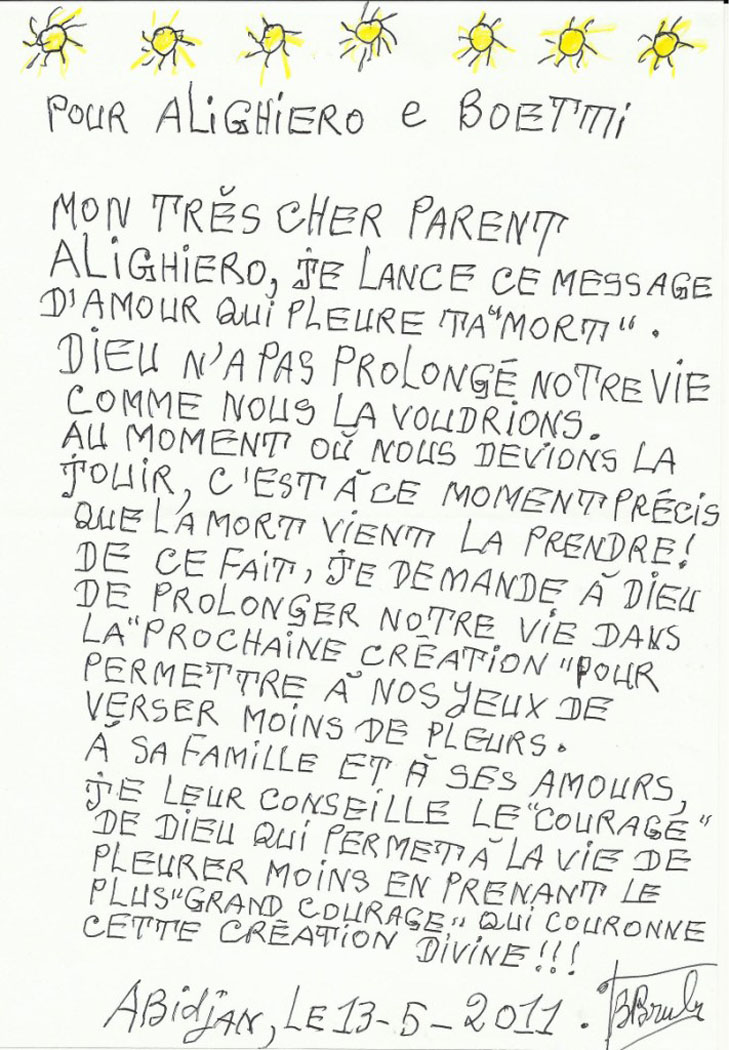 POUR ALIGHIERO e BOETTI
MON TRÉS CHER PARENT
ALIGHIERO, JE LANCE CE MESSAGE
D'AMOUR QUI PLEURE TA "MORT".
DIEU N'A PAS PROLONGÉ NOTRE VIE
COMME NOUS LA VOUDRIONS.
AU MOMENT OÙ NOUS DEVIONS LA
JOUIR, C'EST À CE MOMENT PRÉCIS
QUE LA MORT VIENT LA PRENDRE!
DE CE FAIT, JE DEMANDE À DIEU
DE PROLONGER NOTRE VIE DANS
LA "PROCHAINE CRÉATION" POUR
PERMETTRE À NOS YEUX DE
VERSER MOINS DE PLEURS.
À SA FAMILLE ET À SES AMOURS,
JE LEUR CONSEILLE LE "COURAGE"
DE DIEU QUI PERMET À LA VIE DE
PLEURER MOINS EN PRENANT LE
PLUS "GRAND COURAGE" QUI COURONNE
CETTE CRÉATION DIVINE!!!
ABIDJAN, LE 13-5-2011.